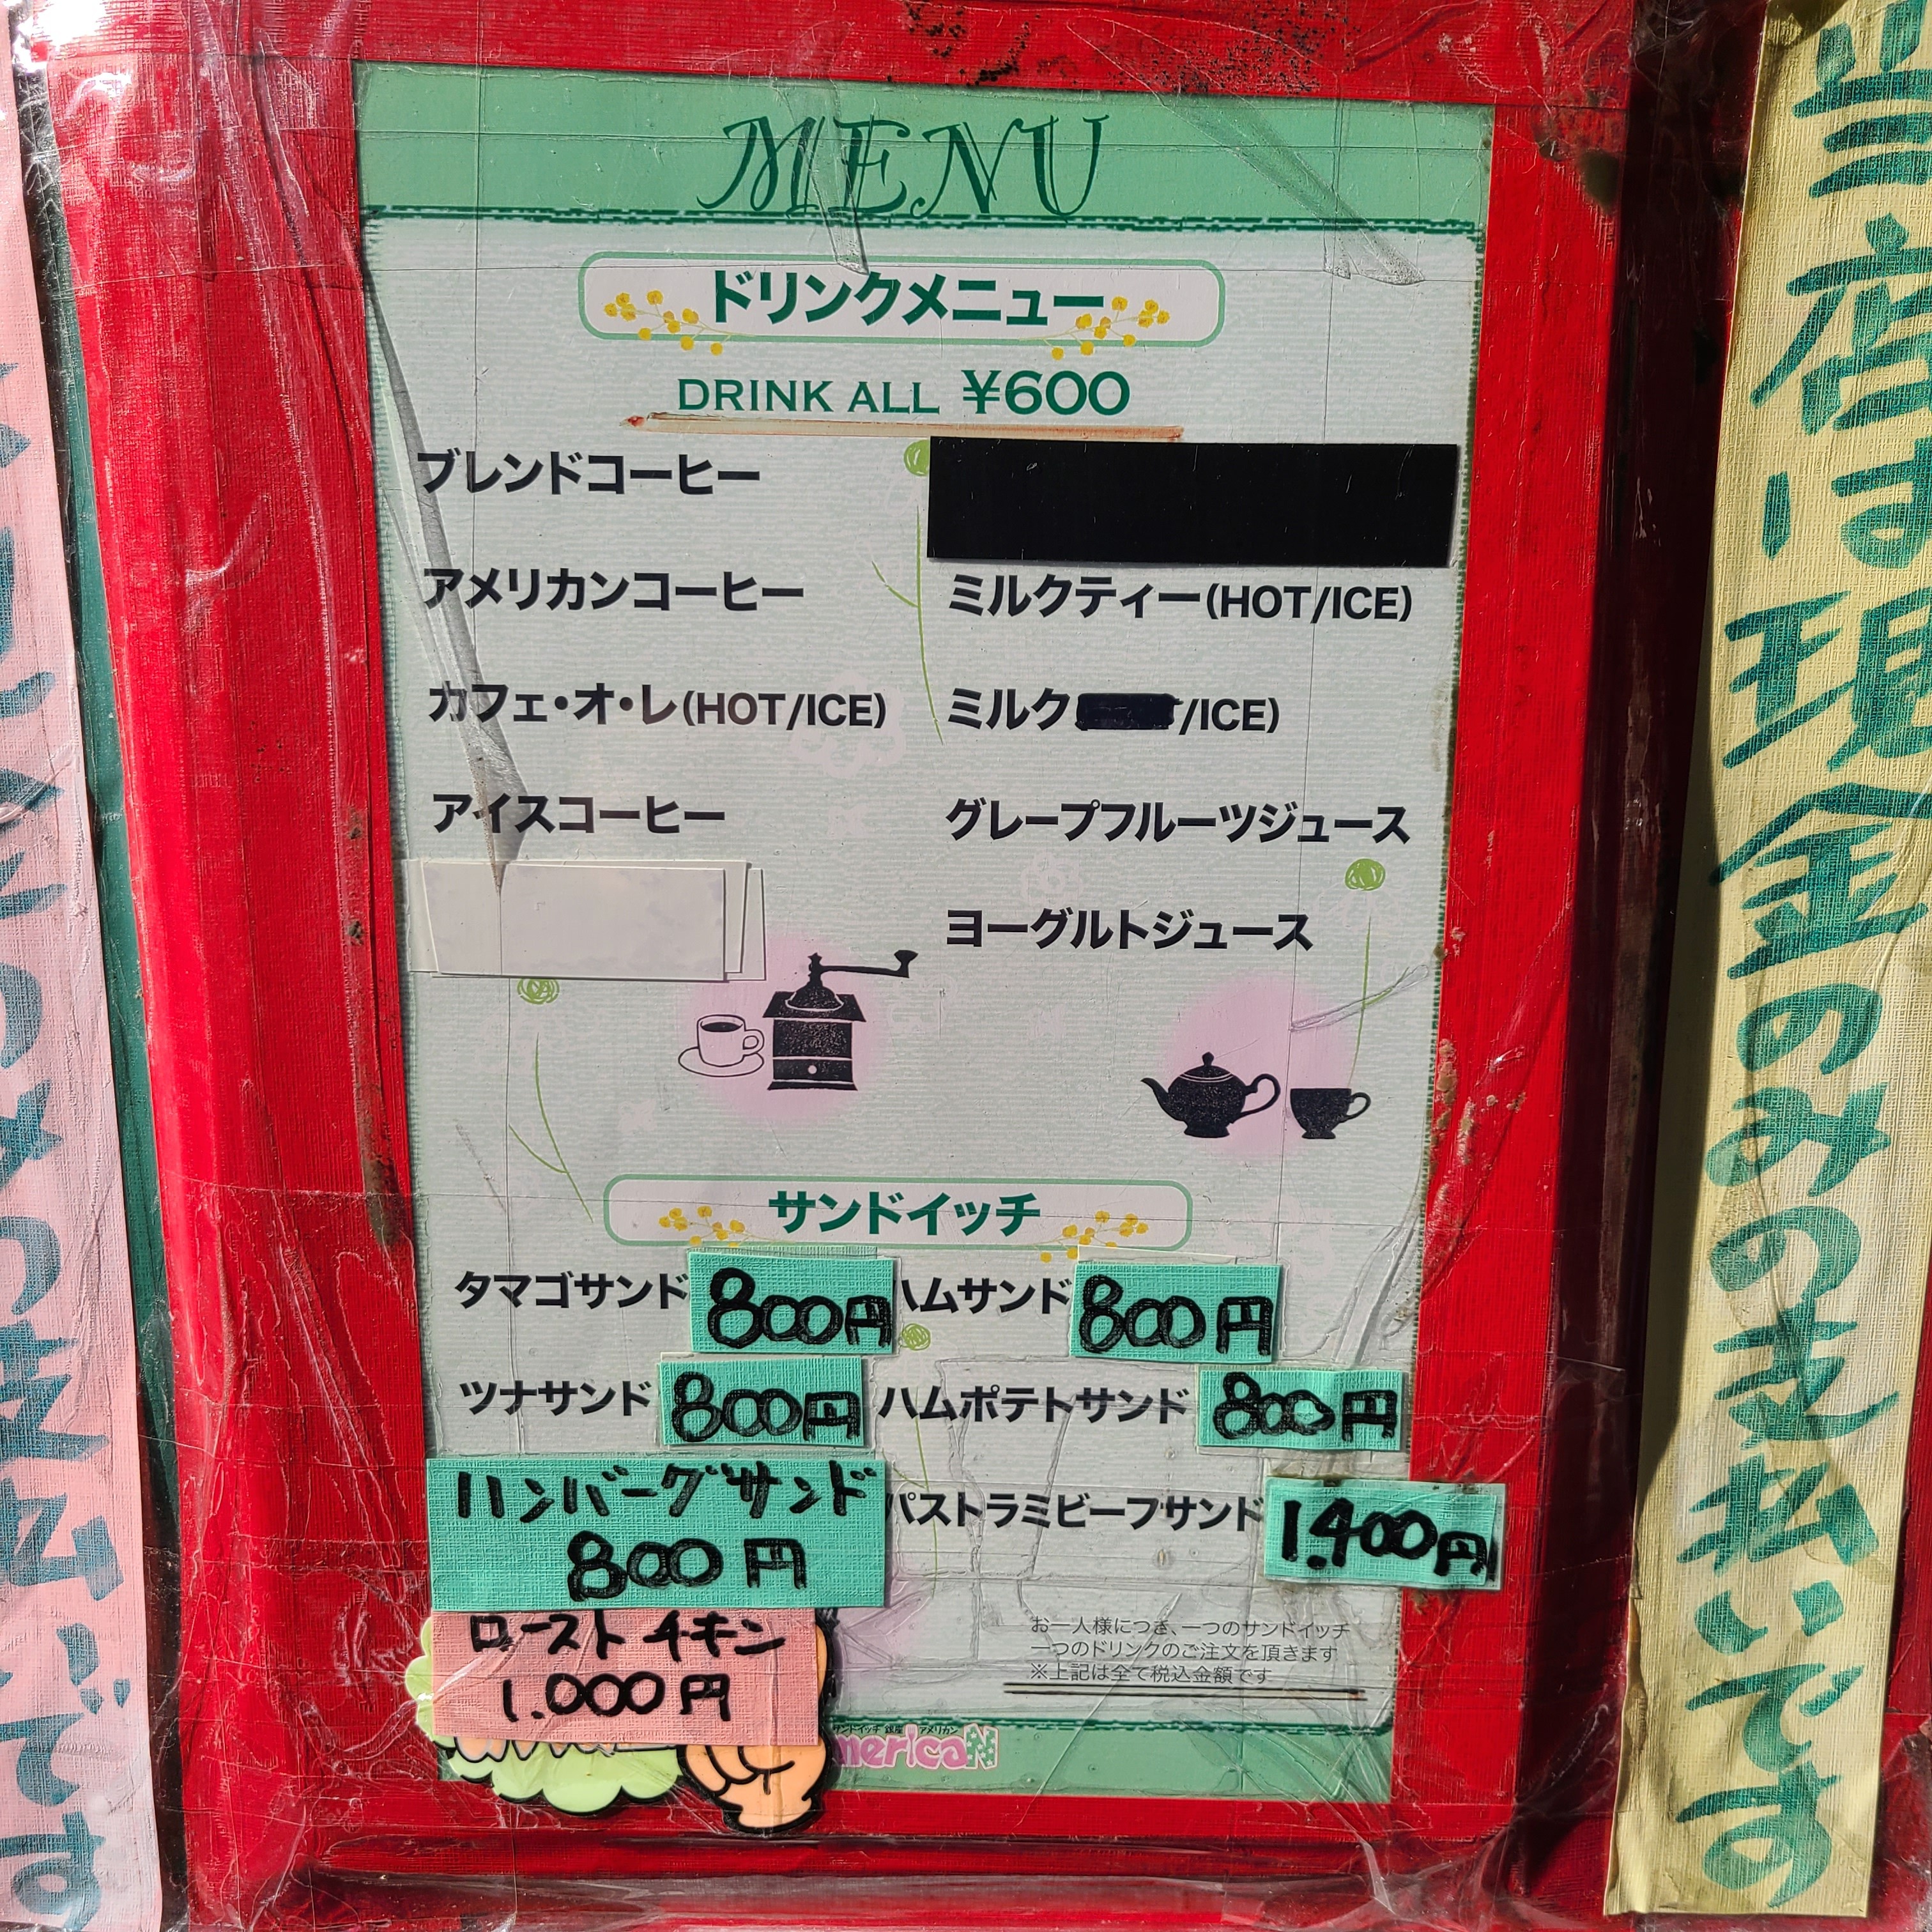 MENU
ドリンクメニュー
DRINK ALL ¥600
ブレンドコーヒー
アメリカンコーヒー
カフェ・オ・レ(HOT/ICE)
アイスコーヒー
ミルクティー(HOT/ICE)
ミルク /ICE)
グレープフルーツジュース
ヨーグルトジュース
サンドイッチ
タマゴサンド 800円
ハムサンド 800円
ツナサンド 800円
ハムポテトサンド 800円
ハンバーグサンド
800円
パストラミビーフサンド 1.400円
ローストチキン
1.000円
お一人様につき、一つのサンドイッチ
一つのドリンクのご注文を頂きます
※上記は全て税込金額です
サンドイッチ 銀座 アメリカン
americaN
当店は、現金のみの支払いです